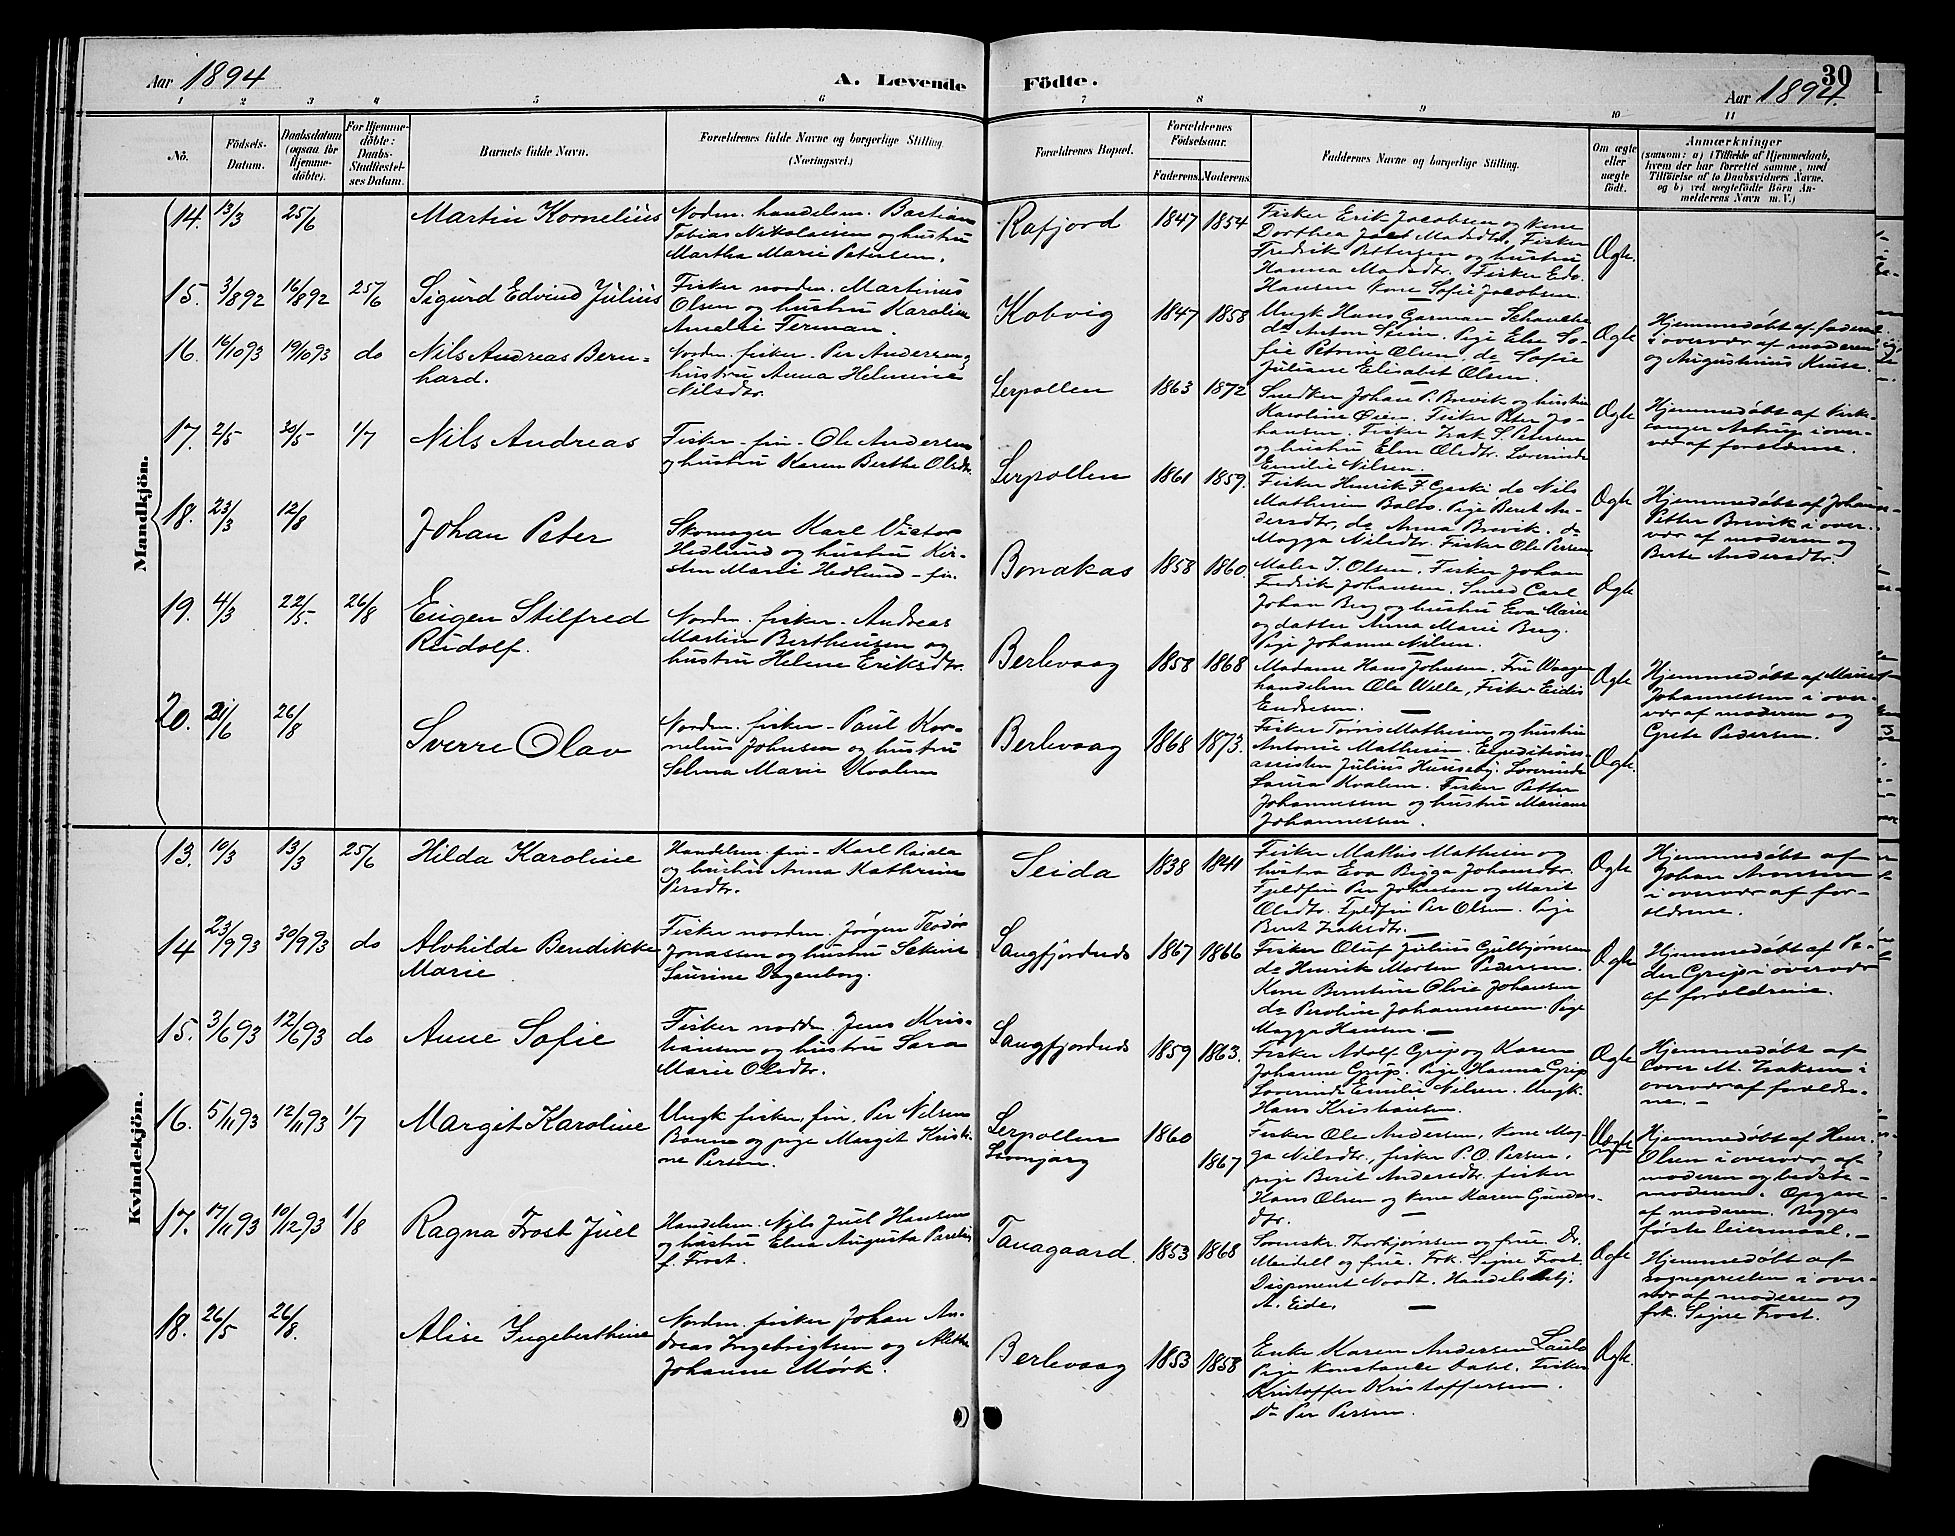 Aar 1894
A. Levende
Födte.
30
Aar 1894.
1 2 3 4 5 6 7 8 9 10 11
No.
Födsels-
Datum.
Daabsdatum
(ogsaa for
Hjemme-
döbte).
For Hjemme-
döbte:
Daabs-
Stadfæstel-
ses Datum.
Barnets fulde Navn.
Forældrenes fulde Navne og borgerlige Stilling
(Næringsvei.)
Forældrenes Bopæl.
Forældrenes
Födselsaar.
Faderens. Moderens.
Faddernes Navne og borgerlige Stilling.
Om ægte
eller
uægte
födt.
Anmærkninger
(saasom: a) i Tilfælde af Hjemmedaab,
hvem der har forrettet samme, med
Tilföielse af to Daabsvidners Navne.
og b) ved uægtefödte Börn An-
melderens Navn m. V.)
Mandkjön.
14. 13/3 25/6
Martin Kornelius
Nordm. handelsm. Bastian
Tobias Nikolaisen og hustru
Martha Marie Petersen.
Rafjord 1847 1854
Fisker Erik Jacobsen og kone
Dorthea Madsdtr. Fisker
Fredrik Pettersen og hustru
Hanna Madsdtr. Fisker Edv.
Hansen kone Sofie Jacobsen.
Ægte
15. 3/892 16/892 25/6
Sigurd Edvind Julius
Fisker nordm. Martinus
Olsen og hustru Karoline
Amalie Ferman.
Kobvig 1847 1858
Ungk Hans Garman
do Anton Stein. Pige Else So-
fie Petrine Olsen. do Sofie
Juliane Elisabet Olsen.
Ægte
Hjemmedøbt af faderen
i overvær af moderen
og Augustinus Kruse.
16. 14/10 93 19/10 93 do
Nils Andreas Bern-
hard.
Nordm. fisker. Per Andersen og
hustru Anna Helmine
Nilsdtr.
Serpollen 1863 1872
Snedker Johan P. Brevik og hustru
Karoline Øien. Fisker Peter Jo-
hansen. Fisker Isak S. Petersen
og hustru Elen Olsdtr. Lærerinde
Emilie Nilsen.
Ægte
Hjemmedøbt af Kirke-
sanger Astrup i over-
vær af forældrene.
17. 2/5 30/5 1/7
Nils Andreas
Fisker - fin - Ole Andersen
og hustru Karen Berthe Olsdtr.
Serpollen 1861 1859.
Fisker Henrik F. do Nils
Mathisen Balto. Pige Berit An-
dersdtr, do Anna Brevik. do
Magga Nilsdtr. Fisker Ole Persen
Ægte
Hjemmedøbt af Johan
Petter Brevik i over-
vær af moderen og
Berte Andersdtr.
18. 23/3 12/8
Johan Peter
Skomager Karl Victor
Hedlund og hustru Kir-
sten Marie Hedlund - fin.
Bonakas 1858 1860.
Maler J. Olsen. Fisker Johan
Fredrik Johansen. Smed Carl
Johan Berg og hustru Eva Marie
og datter Anna Marie Berg.
Pige Johanne Nilsen.
Ægte
19. 4/3 22/5 26/8
Eugen Stilfred
Rudolf.
Nordm. fisker. Andreas
Martin Berthensen og
hustru Helene Eriksdtr.
Berlevaag 1858 1868
Madame Hans Johnsen. Fru Waagen
handelsm Ole Welle, Fisker Eidis
Endresen.
Ægte
Hjemmedøbt af
Johannessen i over-
vær af moderen og
Grete Pedersen.
20. 21/6 26/8
Sverre Olav
Nordm. fisker - Paul Kor-
nelius Johnsen og hustru
Selma Marie Kvalem
Berlevaag 1868 1873.
Fisker Tønris Mathisen og hustru
Antonie Mathisen. Expeditions-
assisten Julius Huseby. Lærerinde
Laura Kvalem. Fisker Petter
Johannessen og hustru Mariane
Johannessen.
Ægte.
Kvindekjön.
13. 10/3 13/3 25/6
Hilda Karoline
Handelsm. fin - Karl
og hustru Anna Kathrine
Persdtr.
Seida 1838 1841
Fisker Mathis Mathisen og
hustru Eva Brigga Johansdtr.
Fjeldfin Per Johnsen og Marit
Olsdtr. Fjeldfin Per Olsen. Pige
Berit Isaksdtr.
Ægte
Hjemmedøbt af
Johan Aronsen
i overvær af for-
ældrene.
14 23/9 93 30/9 93 do
Alvhilde Bendikke
Marie
Fisker nordm. Jørgen Teodor
Jonassen og hustru
Laurine Dagenborg.
Langfjordnæs 1867 1866
Fisker Oluf Julius Gulbjørnsen
do Henrik Morten Pedersen.
Kone Berntine Olvie Johansen
do Peroline Johannessen. Pige
Magga Hansen.
Ægte
Hjemmedøbt af Pe-
der Grip i overvær
af forældrene.
15. 3/6 93 12/6 93 do
Anne Sofie
Fisker nordm. Jens Kris-
tiansen og hustru Sara
Marie Olsdtr.
Langfjordnæs 1859 1863.
Fisker Adolf Grip og Karen
Johanne Grip. Pige Hanna Grip
Lærerinde Emilie Nilsen. Ungk.
Hans Kristiansen.
Ægte
Hjemmedøbt af
Cover M. Isaksen i
overvær af forældre-
ne.
16. 5/11 93 12/11 93 1/7
Margit Karoline
Ungk fisker, fin. Per Nilsen
Banne og pige Margit Kristi-
ne Persen.
Serpollen
1860
1867
Fisker Ole Andersen, kone Mag-
ga Nilsdtr., fisker P.O. Persen,
pige Berit Andersdtr. fisker
Hans Olsen og kone Karen Gunders-
dtr.
Uægte
Hjemmedøbt af Henr.
Olsen i overvær af
moderen og bedste-
moderen. Opgave
af moderen. Begges
første leiermaal.
17. 17/11 93 10/12 93 1/8
Ragna Frost Juel
Handelsm. Nils Juel Hansen
og hustru Elna Augusta
f. Frost.
Tanagaard. 1853 1868
Lensm. Thorbjørnsen og frue. Dr.
Meidell og frue. Frk. Signe Frost.
Disponent Noodt. Handelsbetj.
A. Eide.
Ægte
Hjemmedøbt af
sognepresten i over-
vær af moderen og
frk. Signe Frost.
18. 26/5 26/8.
Alise Ingeberthine
Nordm. fisker Johan An-
dreas Ingebrigtsen og Alethe
Johanne Mørk.
Berlevaag 1853 1858
Enke Karen Andersen
Pige Konstance Dahl. Fisker
Kristoffer Kristoffersen.
Do Per Persen.
Ægte.